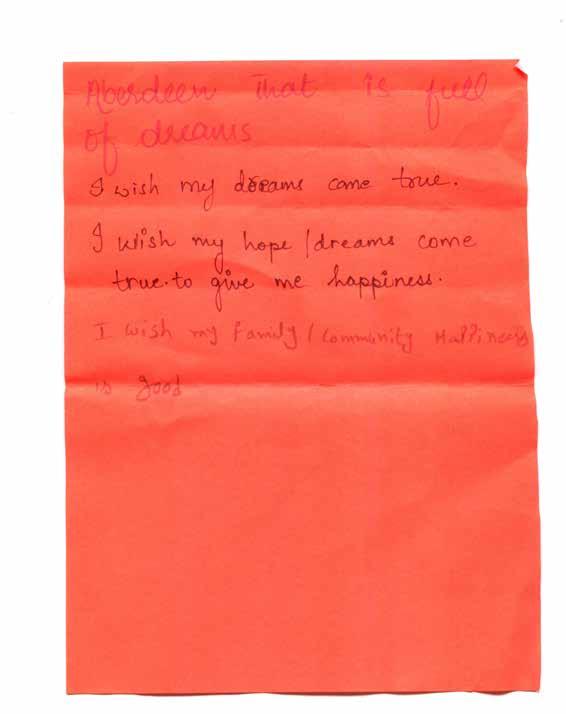 Aberdeen that is full
of dreams
I wish my dreams come true.
I wish my hope/dreams come
true.to give me happiness.
I wish my family/community Happiness
is good